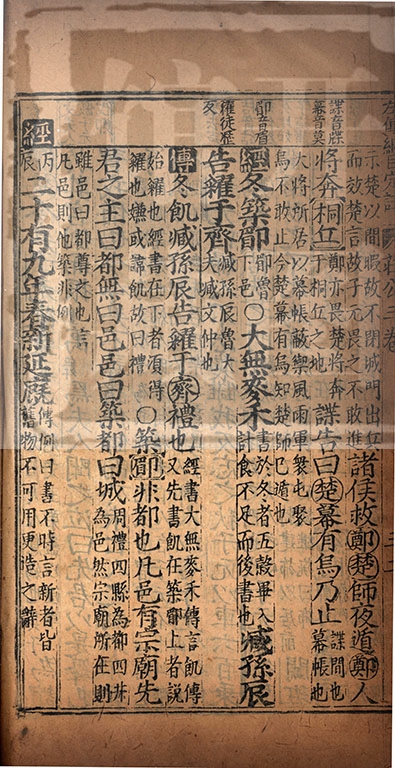 莊公三卷
示楚以閒暇故不閉城門出兵
而效楚言故子元畏之不敢進
諸侯救鄭楚師夜遁鄭人
諜音牒
幕音莫
將奔桐丘
鄭亦畏楚將奔
于桐丘之地
諜告曰楚幕有烏乃止
諜間也
幕帳也
大將所居以幕帳蔽禦風雨軍衆屯聚
烏不敢止今楚幕有烏知楚師已遁也
郿音眉
經冬築郿
郿魯
下邑
○大無麥禾
書於冬者五穀畢入
計食不足而後書也
臧孫辰
糴徒歷
反
告糴于齊
臧孫辰魯大
夫臧文仲也
傳冬飢臧孫辰告糴于齊禮也
經書大無麥禾傳言飢傳
又先書飢在築郿上者說
始糴也經書在下者須得
糴也嫌或諱飢故曰禮
○築郿非都也凡邑有宗廟先
君之主曰都無曰邑邑曰築都曰城
周禮四縣為都四井
為邑然宗廟所在則
雖邑曰都尊之也言
凡邑則他築非例
經
丙
辰
二十有九年春新延廄
傳例曰書不時言新者皆
舊物不可用更造之辭